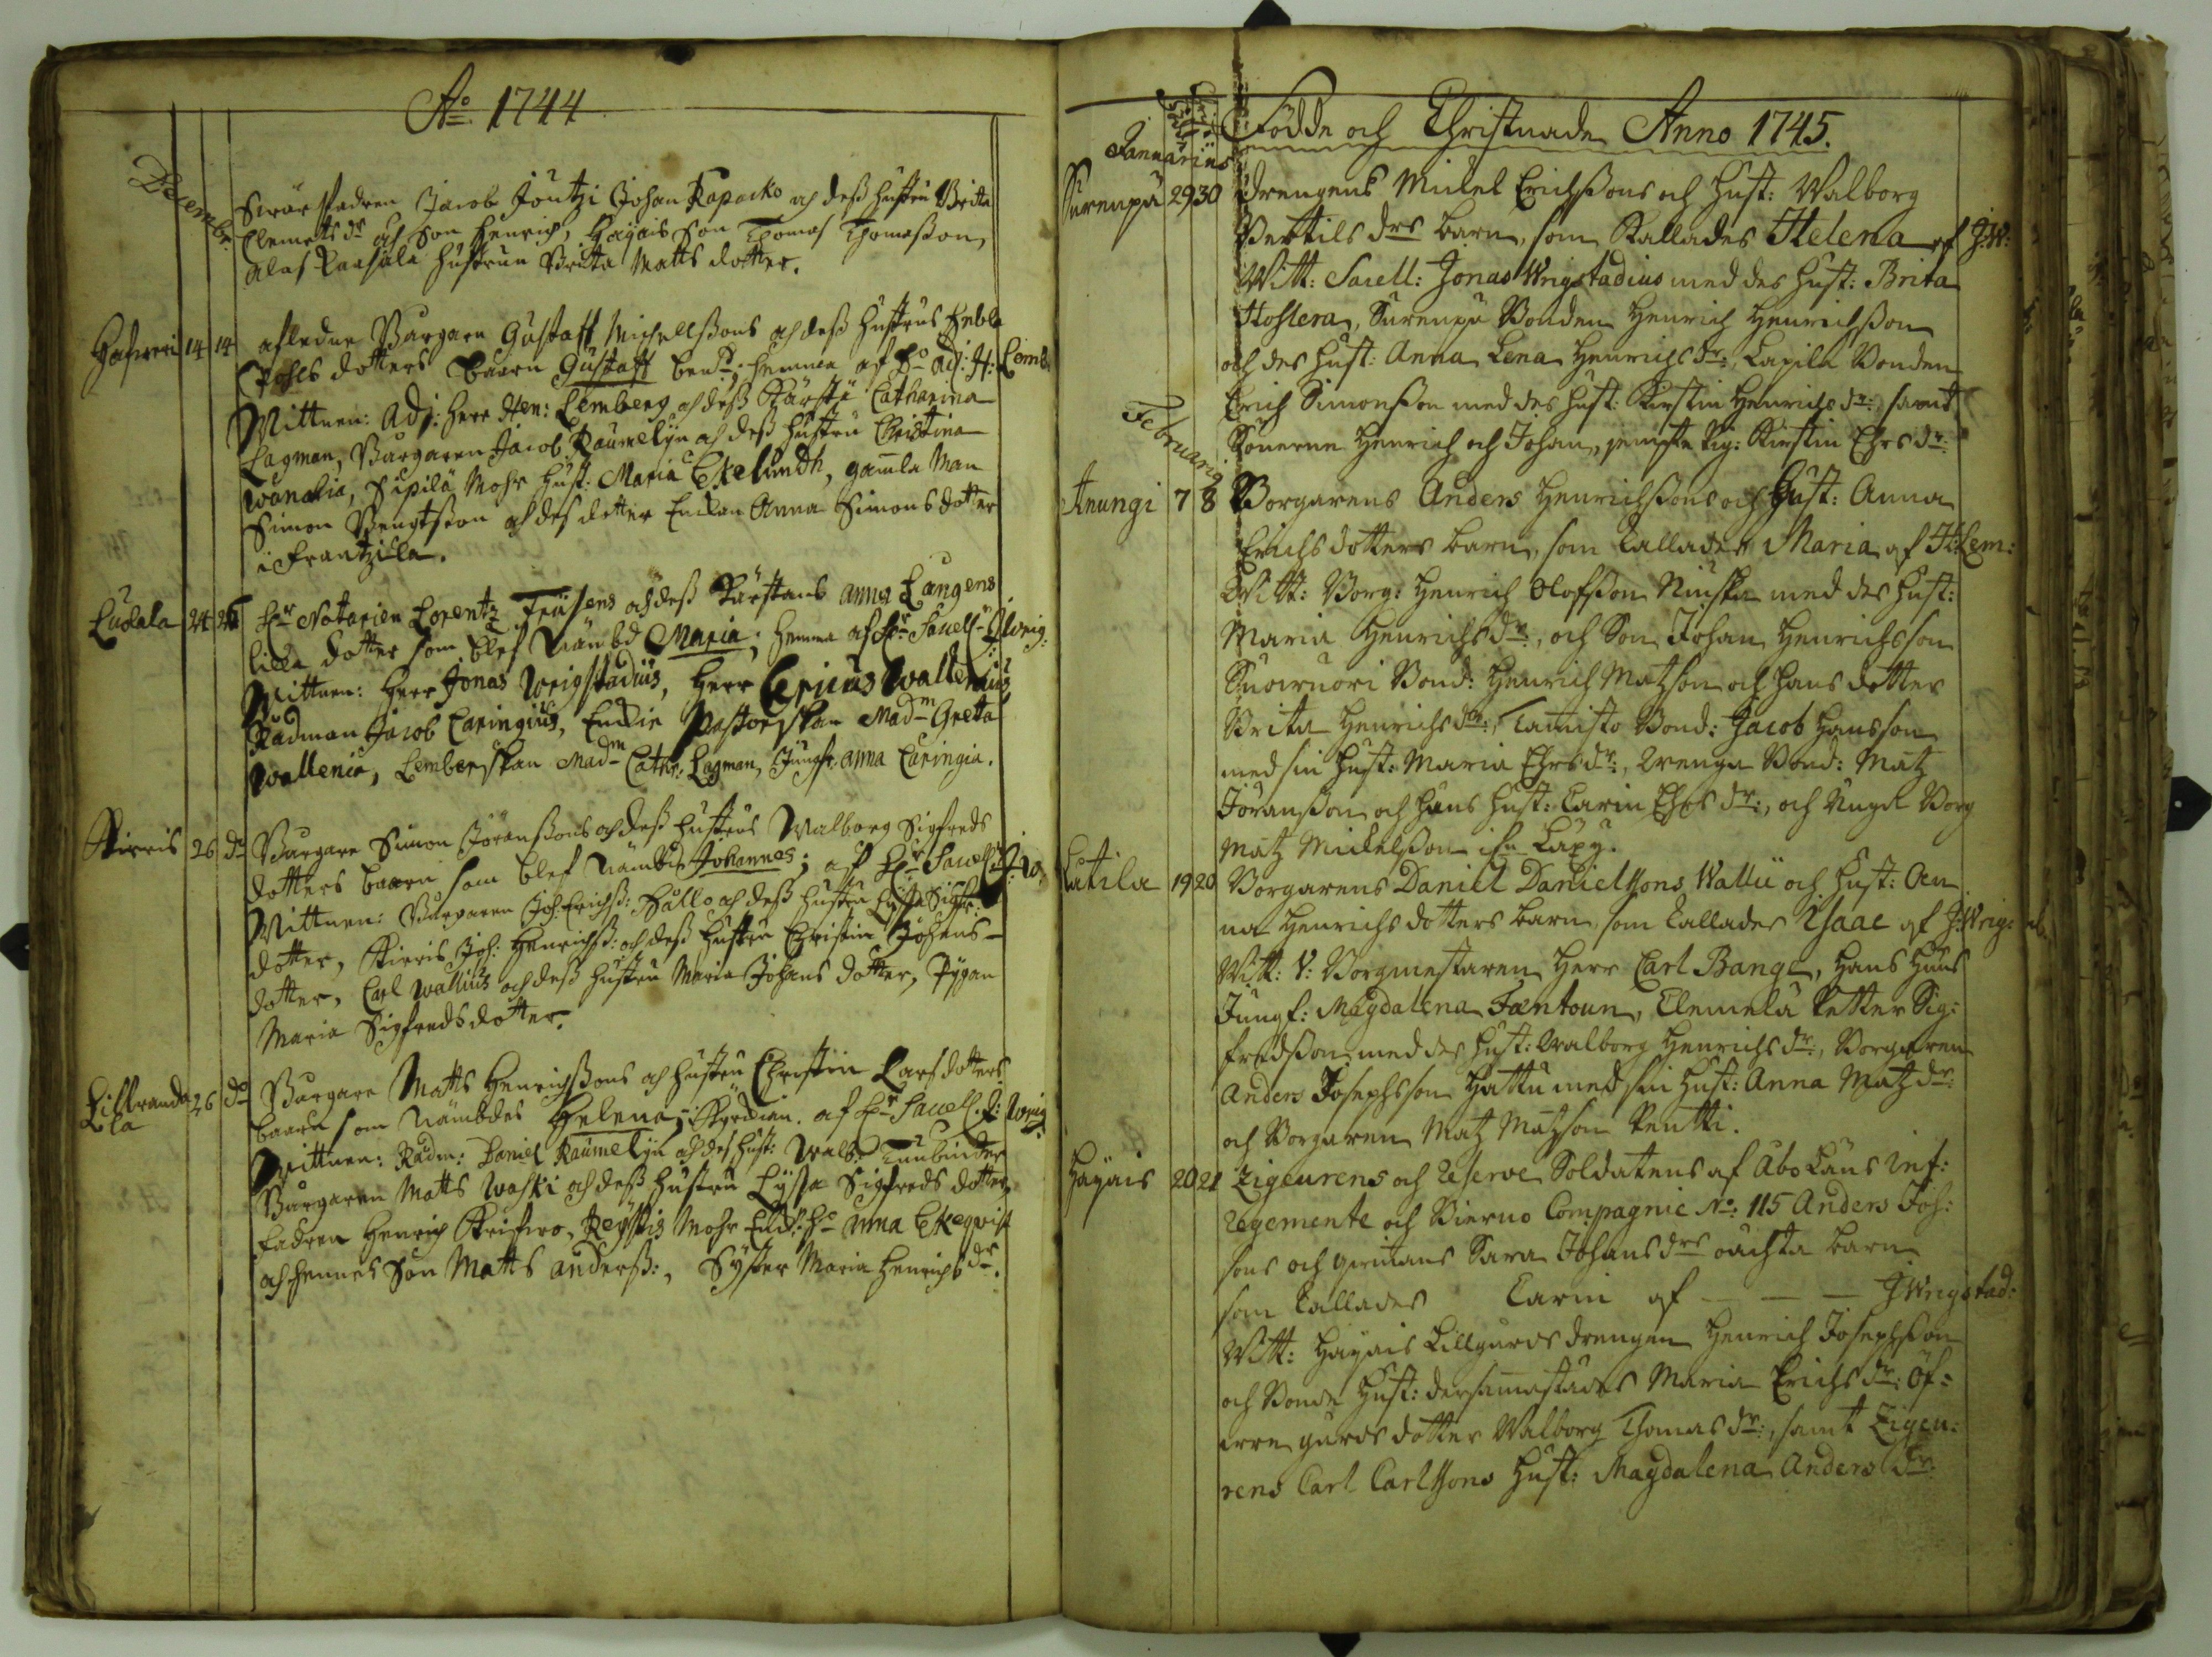 Ao 1744
Decembr:
Swärfadren Jacob Joutzi Johan Rapacko och deß hustru Britta
Clemets dr och Son Henrich, Hayais Son Thomas Thomasson,
hustrun Brita Matts dotter.
14 14 afledne Burgaren Gustaff Michellssons och deß hustrus Hebla
dotters baarn Gustaff hemma af Ho Adj: H: Lemb.
Wittnen: Adj: Herr Hen: Lemberg och deß Kärsta Catharina
Lagman, Burgaren Jacob Raumelijn och deß hustru Christina
Wanalia, Sipilä Mohr Hust: Maria Ekelundh, gamla Man
Simon Bengtsson och des dotter Enckan Anna Simons dotter
i Frantzila.
Ludala 24 26 Hr Notarien Lorentz Frisens och deß Kärstans Anna Langens
lilla dotter som blef Nämbd Maria, hemma af Hr Sacell: J: Wrig:
Wittnen: Herr Jonas Wrigstadius, Herr Ericus Wallenius
Rådman Jacob Caringius, Enckie Pastorskan Madm Greta
Wallenia, Lemberskan Madm Cath: Lagman, Jungfr: Anna Caringia.
Kirris 26 do Burgare Simon Jöranssons och deß hustrus Walborg Sigfreds
dotters baarn som blef Nämbd Johannes; af Hr Sacell: J: W.
Wittnen: Burgaren Joh: Erichs: Hållo och deß hustru Lijsa Sigfr:
dotter, Kirris Joh: Henrichs: och deß hustru Christin Johans
dotter, Carl Wallius och deß hustru Maria Johans dotter, Pygan
Maria Sigfredsdotter.
Lillranda
la 26 do Burgare Matts Henrichssons och hustru Christin Lars dotters
baarn som Nämbdes Helena, af Hr Sacell: J: Wrig
Wittnen: Rådm: Daniel Raumelijn och des hust: Walb:
Burgaren Matts Waski och deß hustru Lijsa Sigfreds dotter,
fadren Henrich Mohr Enck: Ho Anna Ekeqwist
och hennes Son Matts Anderss:, Syster Maria Henrichs dr.
Födde och Christnade Anno 1745.
Januarius
Surenpä 29 30 Drengens Mickel Erichssons och Hust: Walborg
Bertils drs barn, som Kallades Helena af J: W:
Witt: Sacell: Jonas Wrigstadius med des hust: Brita
Hoslera, Surenpä Bonden Henrich Henrichsson
och des hust: Anna Lena Henrichs dr:, Lapila Bonden
Erich Simonsson med des hust: Kirstin Henrichs dr:, samt
Sönerne Henrich och Johan, jempte Pig: Kirstin Ehrs dr:
Februarius
Anungi 7 8 Borgarens Anders Henrichssons och Hust: Anna
Erichs dotters barn, som Kallades Maria af H: Lem:
Witt: Borg: Henrich Olofsson Niuska med des hust:
Maria Henrichs dr:, och Son Johan Henrichsson
Suoruori Bond: Henrich Matzson och hans dotter
Brita Henrichs dr:, Tamisto Bond: Jacob Hansson
med sin hust: Maria Ehrs dr:, Wrenga Bond: Matz
Jöransson och hans hust: Carin Ehrs dr:, och Ungk Borg
Matz Mickelsson ifr: Lapy.
Katila 19 20 Borgarens Daniel Danielssons Wallü och hust: An
na Henrichs dotters barn som Kallades Isaac af J: Wrig:
Witt: V: Borgmestaren Herr Carl Bange, Hans Huus
Jungf: Magdalena Fæntoun, Clemelä Petter Sig:
fredsson med des hust: Walborg Henrichs dr:, Borgaren
Anders Josephsson Hattu med sin hust: Anna Matz dr:
och Borgaren Matz Matzson Pentti.
Hayais 20 21 Zigeurens och Reserve Soldatens af Åbo Läns Inf:
Regemente och Wierno Compagnie No: 115 Anders Joh:
sons och qwinans Sara Johans drs oächta barn
som Kallades Carin af — — — J Wrigstad:
Witt: Hayais Lillgårds drengen Henrich Josephsson
och Bonde Hust: dersammastädes Maria Erichs dr: Öf=
werre gårds dotter Walborg Thomas dr:, samt Zigeu:
rens Carl Carlssons Hust: Magdalena Anders dr: